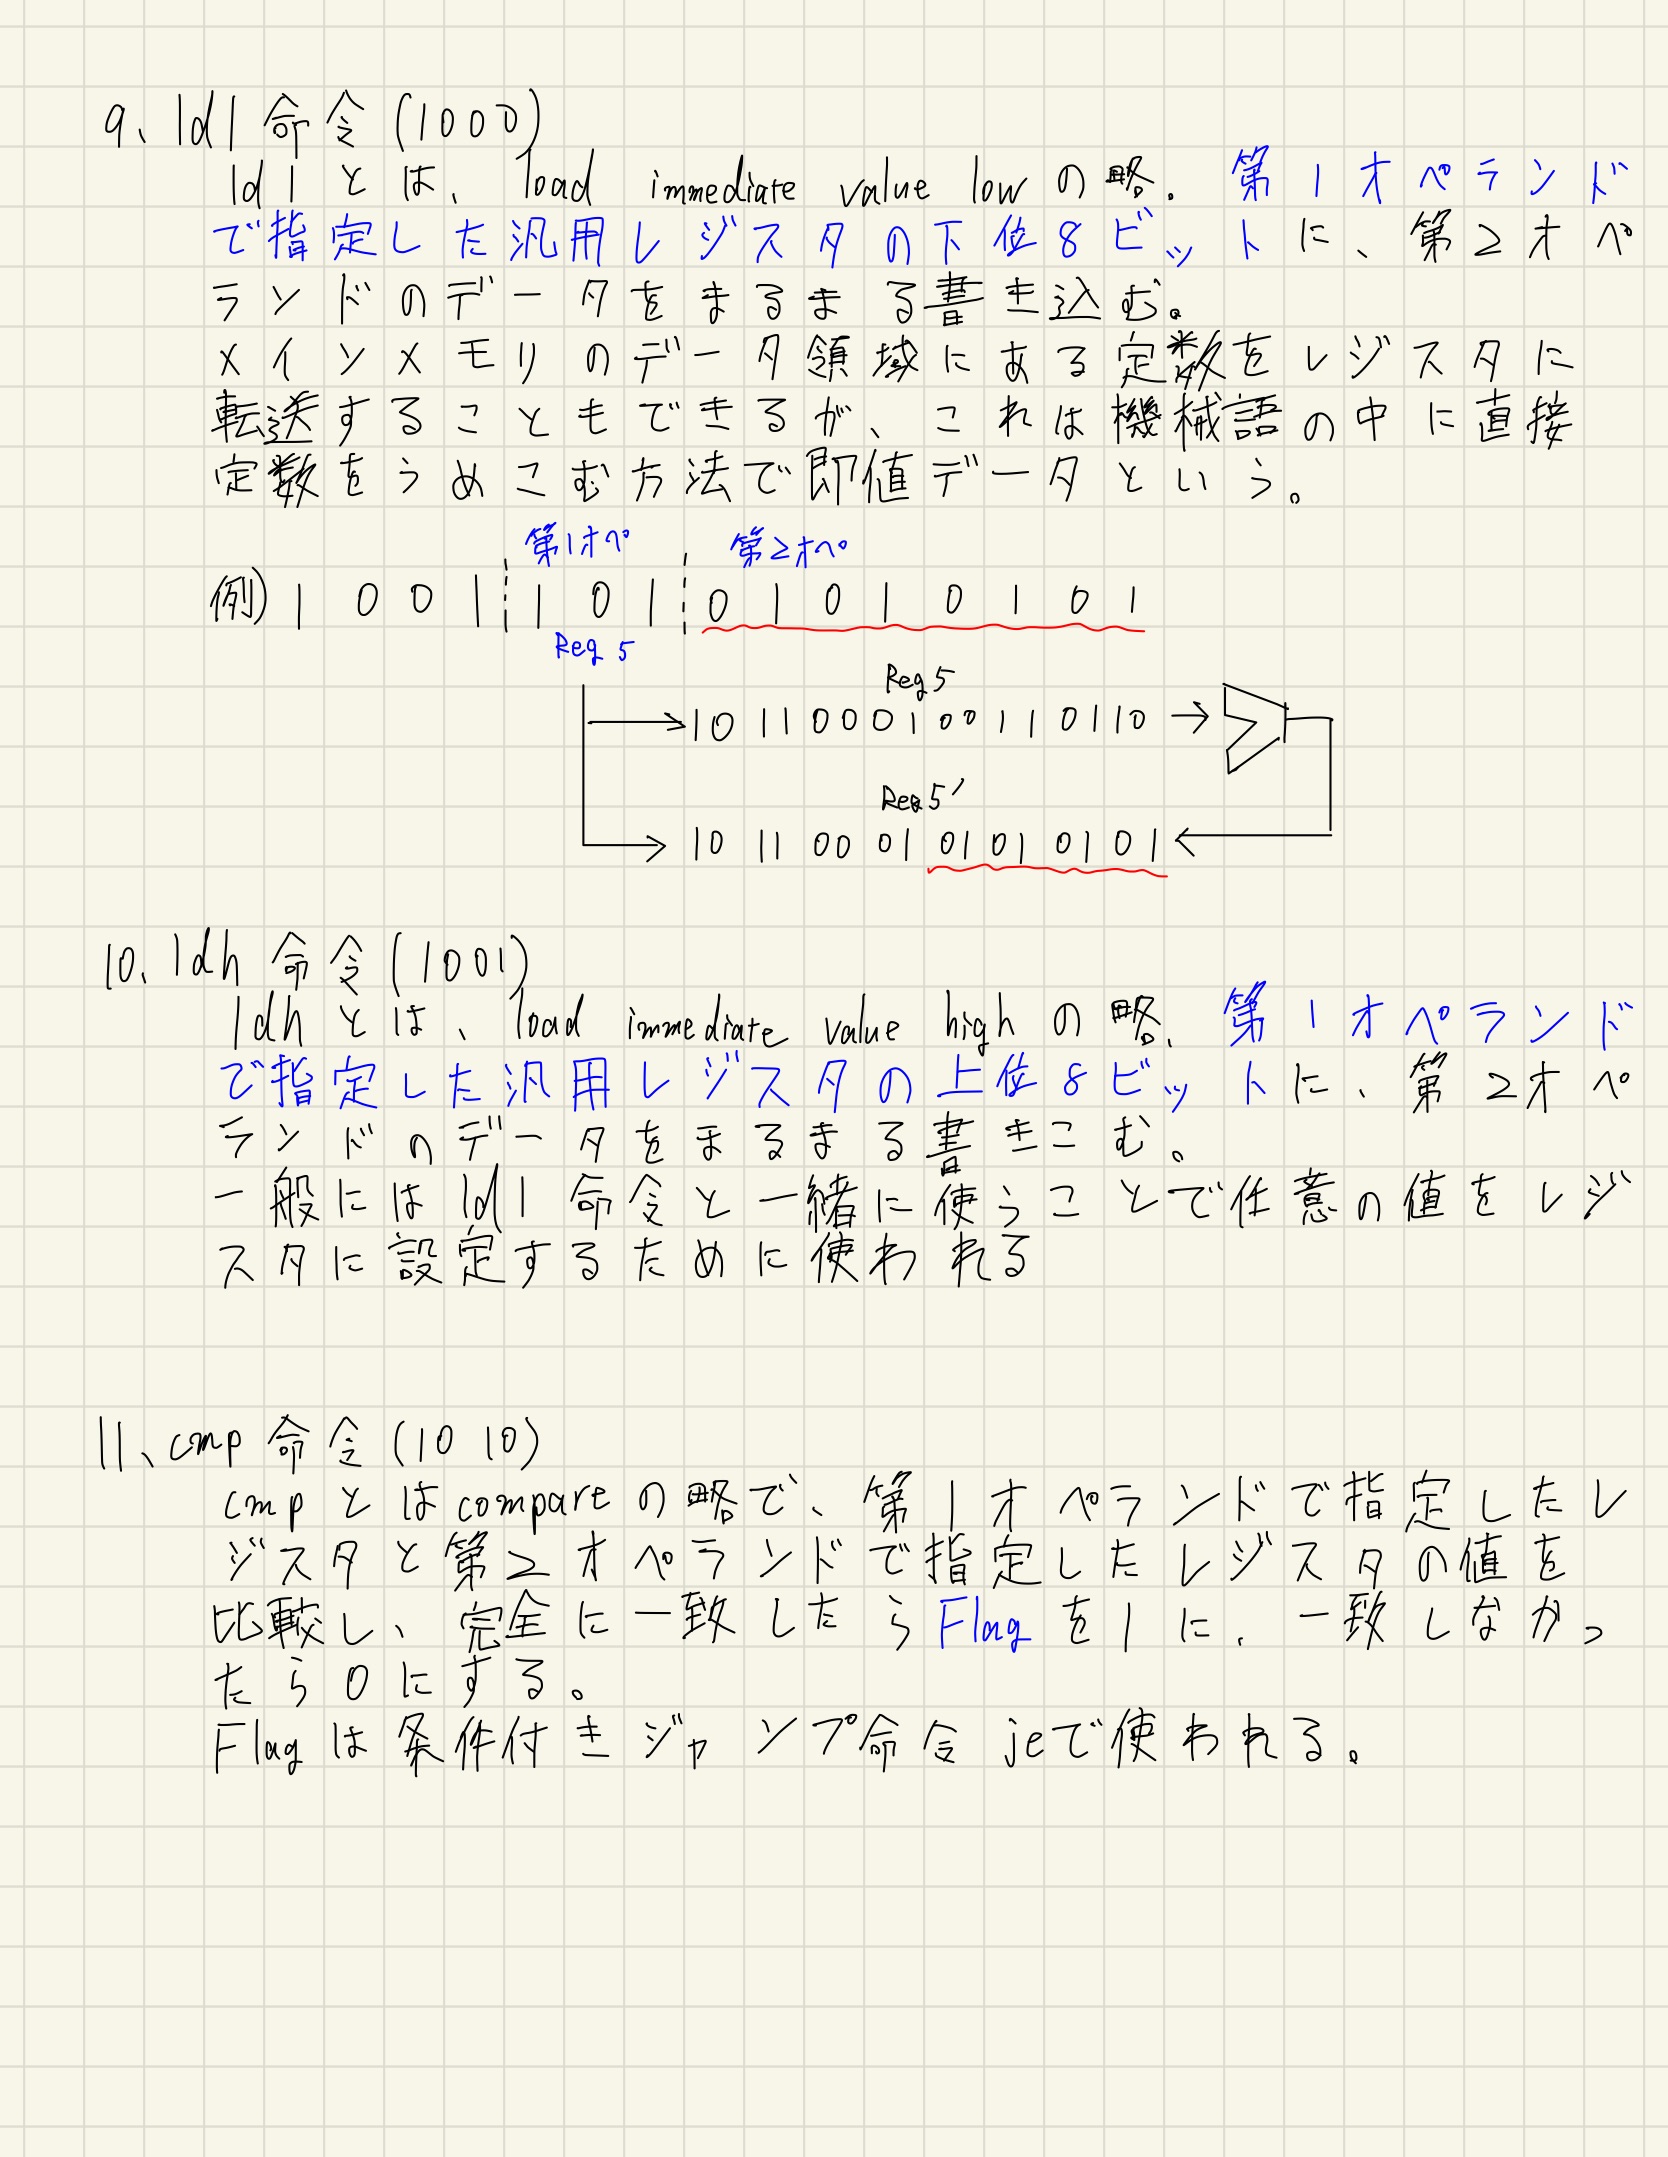 9、ldl命令(1000)
ldlとは、load immediate value lowの略．第1オペランド
で指定した汎用レジスタの下位8ビットに、第2オペ
ランドのデータをまるまる書き込む。
メインメモリのデータ領域にある定数をレジスタに
転送することもできるが、これは機械語の中に直接
定数をうめこむ方法で即値データという。
第1オペ 第2オペ
例) 1 0 0 1 1 0 1 0 1 0 1 0 1 0 1
Reg 5
Reg 5
10 11 000 1 00 1 1 0 1 10
Reg 5'
10 11 00 01 01 01 01 01
10、ldh命令(1001)
ldhとは、load immediate value highの略．第1オペランド
で指定した汎用レジスタの上位8ビットに、第2オペ
ランドのデータをまるまる書きこむ。
一般にはldl命令と一緒に使うことで任意の値をレジ
スタに設定するために使われる
11、cmp命令(1010)
cmpとはcompareの略で、第1オペランドで指定したレ
ジスタと第2オペランドで指定したレジスタの値を
比較し、完全に一致したらFlagを1に、一致しなかっ
たら0にする。
Flagは条件付きジャンプ命令jeで使われる。